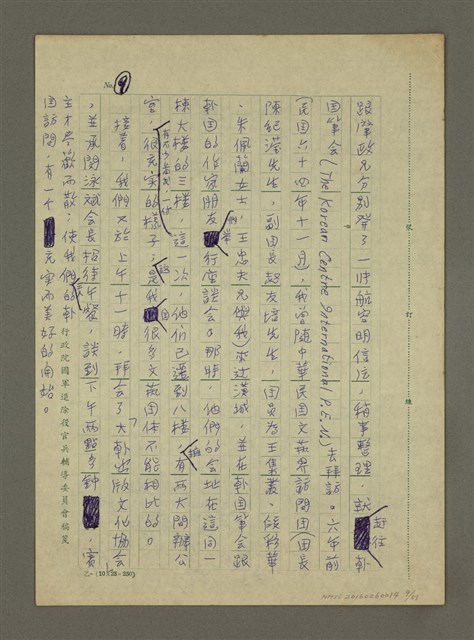 No. 9
跟肇政兄分別發了一些航空明信片，稍事整理，就趕往韓
国筆会(The Korean Centre International P.E.N.)去拜訪。六年前
(民国六十四年十一月)，我曾隨中華民国文藝界訪問団(団長
陳紀瀅先生，副団長趙友培先生，団員為王集叢、邱彩華
、朱佩蘭女士、王忠夫兄與我)來过漢城，並在韓国筆会跟
韓国的作家朋友們舉行座談会。那時，他們的会址在這同一
棟大樓的三樓，這一次，他們已遷到八樓，擁有兩大間辦公
室，很充实的樣子；是我國很多文藝団体不能相比的。
接着，我們又於上午十一時，拜会了大韓出版文化協会
，並承閔泳斌会長招待午餐，談到下午兩點多鐘，賓
主才尽歡而散；使我們的韓
国訪問，有一个充实而美好的開始。
行政院國軍退除役官兵輔導委員會稿箋
NMTL20120060019 9/21